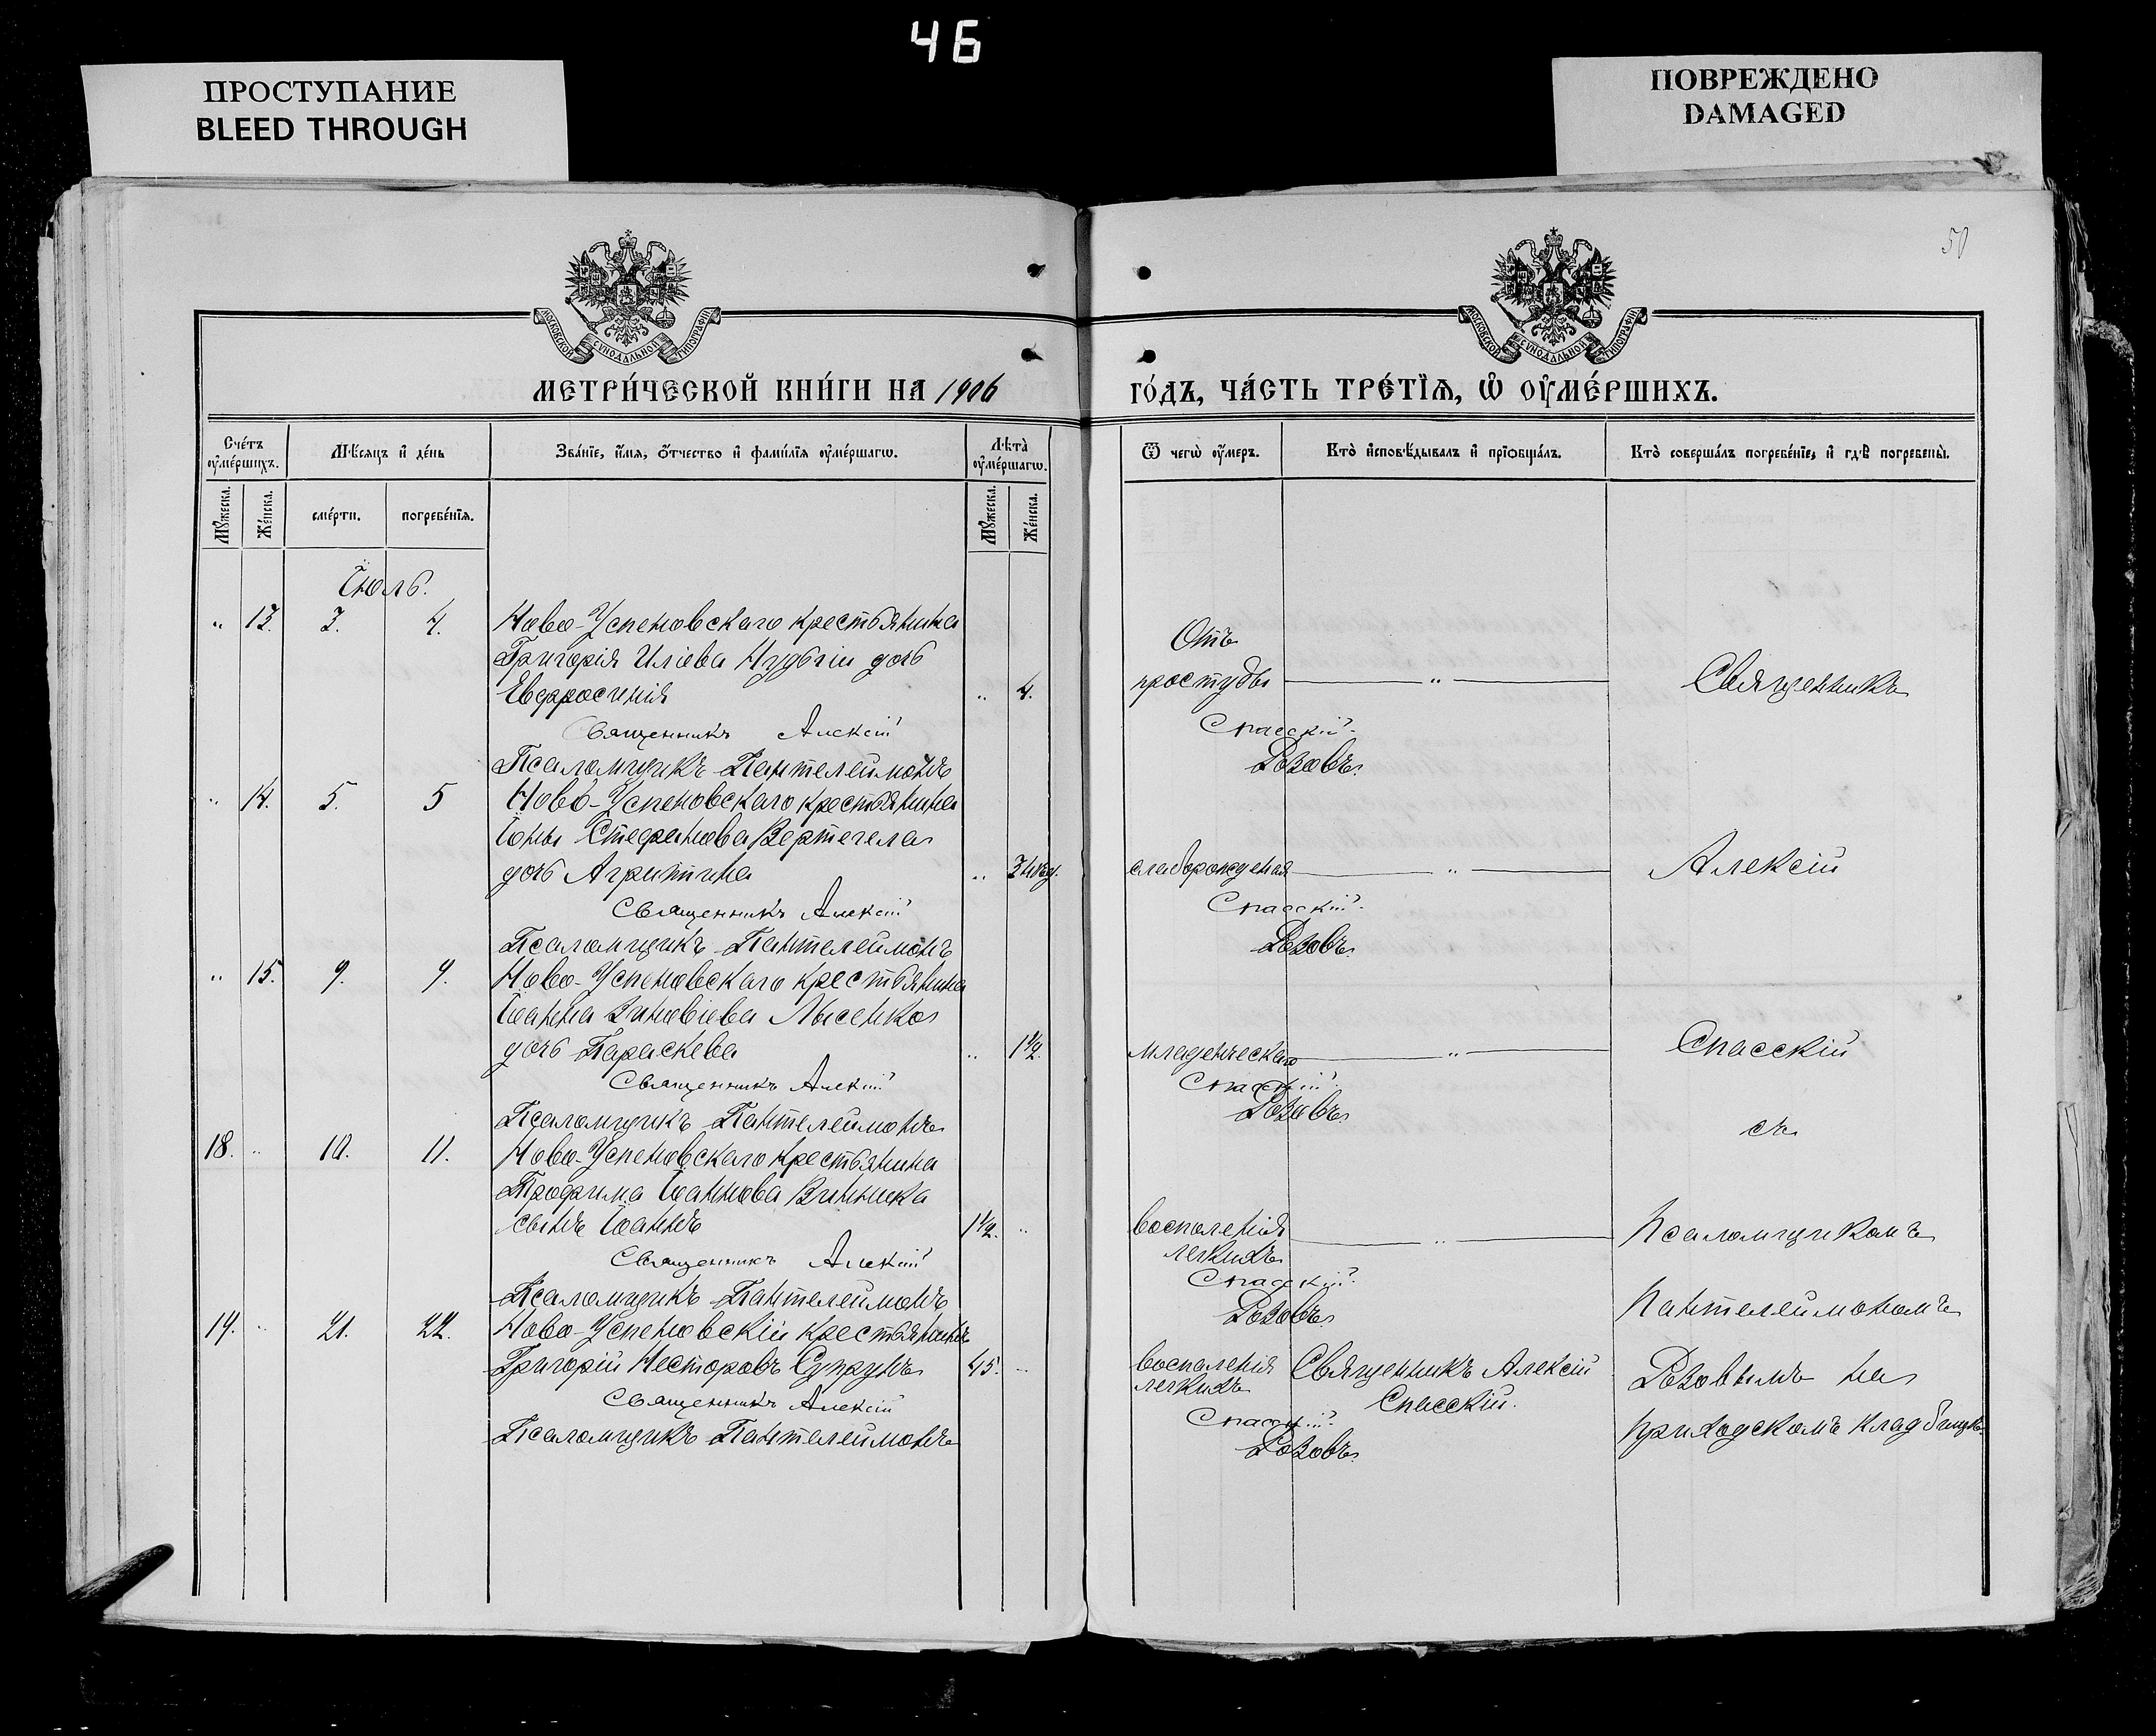 46
ПРОСТУПАНИЕ
BLEED THROUGH
ПОВРЕЖДЕНО
DAMAGED
50
МОСКОВСКОЙ СѴНОДАЛЬНОЙ ТИПОГРАФІИ
МОСКОВСКОЙ СѴНОДАЛЬНОЙ ТИПОГРАФІИ
МЕТРИ́ЧЕСКОЙ КНИ́ГИ НА 1906
ГО́ДЪ, ЧА́СТЬ ТРЕ́ТЇѦ, Ѡ҆ ОУ҆МЕ́РШИХЪ.
Сче́тъ оу҆ме́ршихъ.
Мѣ́сяцъ и҆ де́нь
Зва́нїе, и҆́мя, о҆́тчество и҆ фами́лїя оу҆ме́ршагѡ.
Лѣ́та оу҆ме́ршагѡ.
Ѿ чегѡ̀ оу҆́меръ.
Кто̀ и҆сповѣ́дывалъ и҆ прїѡбща́лъ.
Кто̀ соверша́лъ погребе́нїе, и҆ гдѣ̀ погребены̀.
Мꙋ́жеска.
Же́нска.
сме́рти.
погребе́нїя.
Мꙋ́жеска.
Же́нска.
Іюль.
" 13. 3. 4. Ново-Успеновскаго крестьянина
Григорія Иліева Нудьги дочь
Евфросинія " 4.
Отъ
простуды " Священникъ
Священникъ Алексій Спасскій.
Псаломщикъ Пантелеймонъ Розовъ.
" 14. 5. 5 Ново-Успеновскаго крестьянина
Іоны Стефанова Вертегела
дочь Агриппина " 3 нед. слаборожденія " Алексій
Священникъ Алексій Спасскій.
Псаломщикъ Пантелеймонъ Розовъ.
" 15. 9. 9. Ново-Успеновскаго крестьянина
Іоанна Зиновіева Лысенко
дочь Параскева " 1½. младенческаго " Спасскій
Священникъ Алексій Спасскій.
Псаломщикъ Пантелеймонъ Розовъ.
съ
18. " 10. 11. Ново-Успеновскаго крестьянина
Трофима Іоаннова Винника
сынъ Іоаннъ 1½. " воспаленія легкихъ " псаломщикомъ
Священникъ Алексій Спасскій.
Псаломщикъ Пантелеймонъ Розовъ.
Пантелеймономъ
19. " 21. 22. Ново-Успеновскій крестьянинъ
Григорій Несторовъ Супрунъ 45. " воспаленія легкихъ Священникъ Алексій Спасскій. Розовымъ на
Священникъ Алексій Спасскій.
Псаломщикъ Пантелеймонъ Розовъ.
приходскомъ кладбищѣ